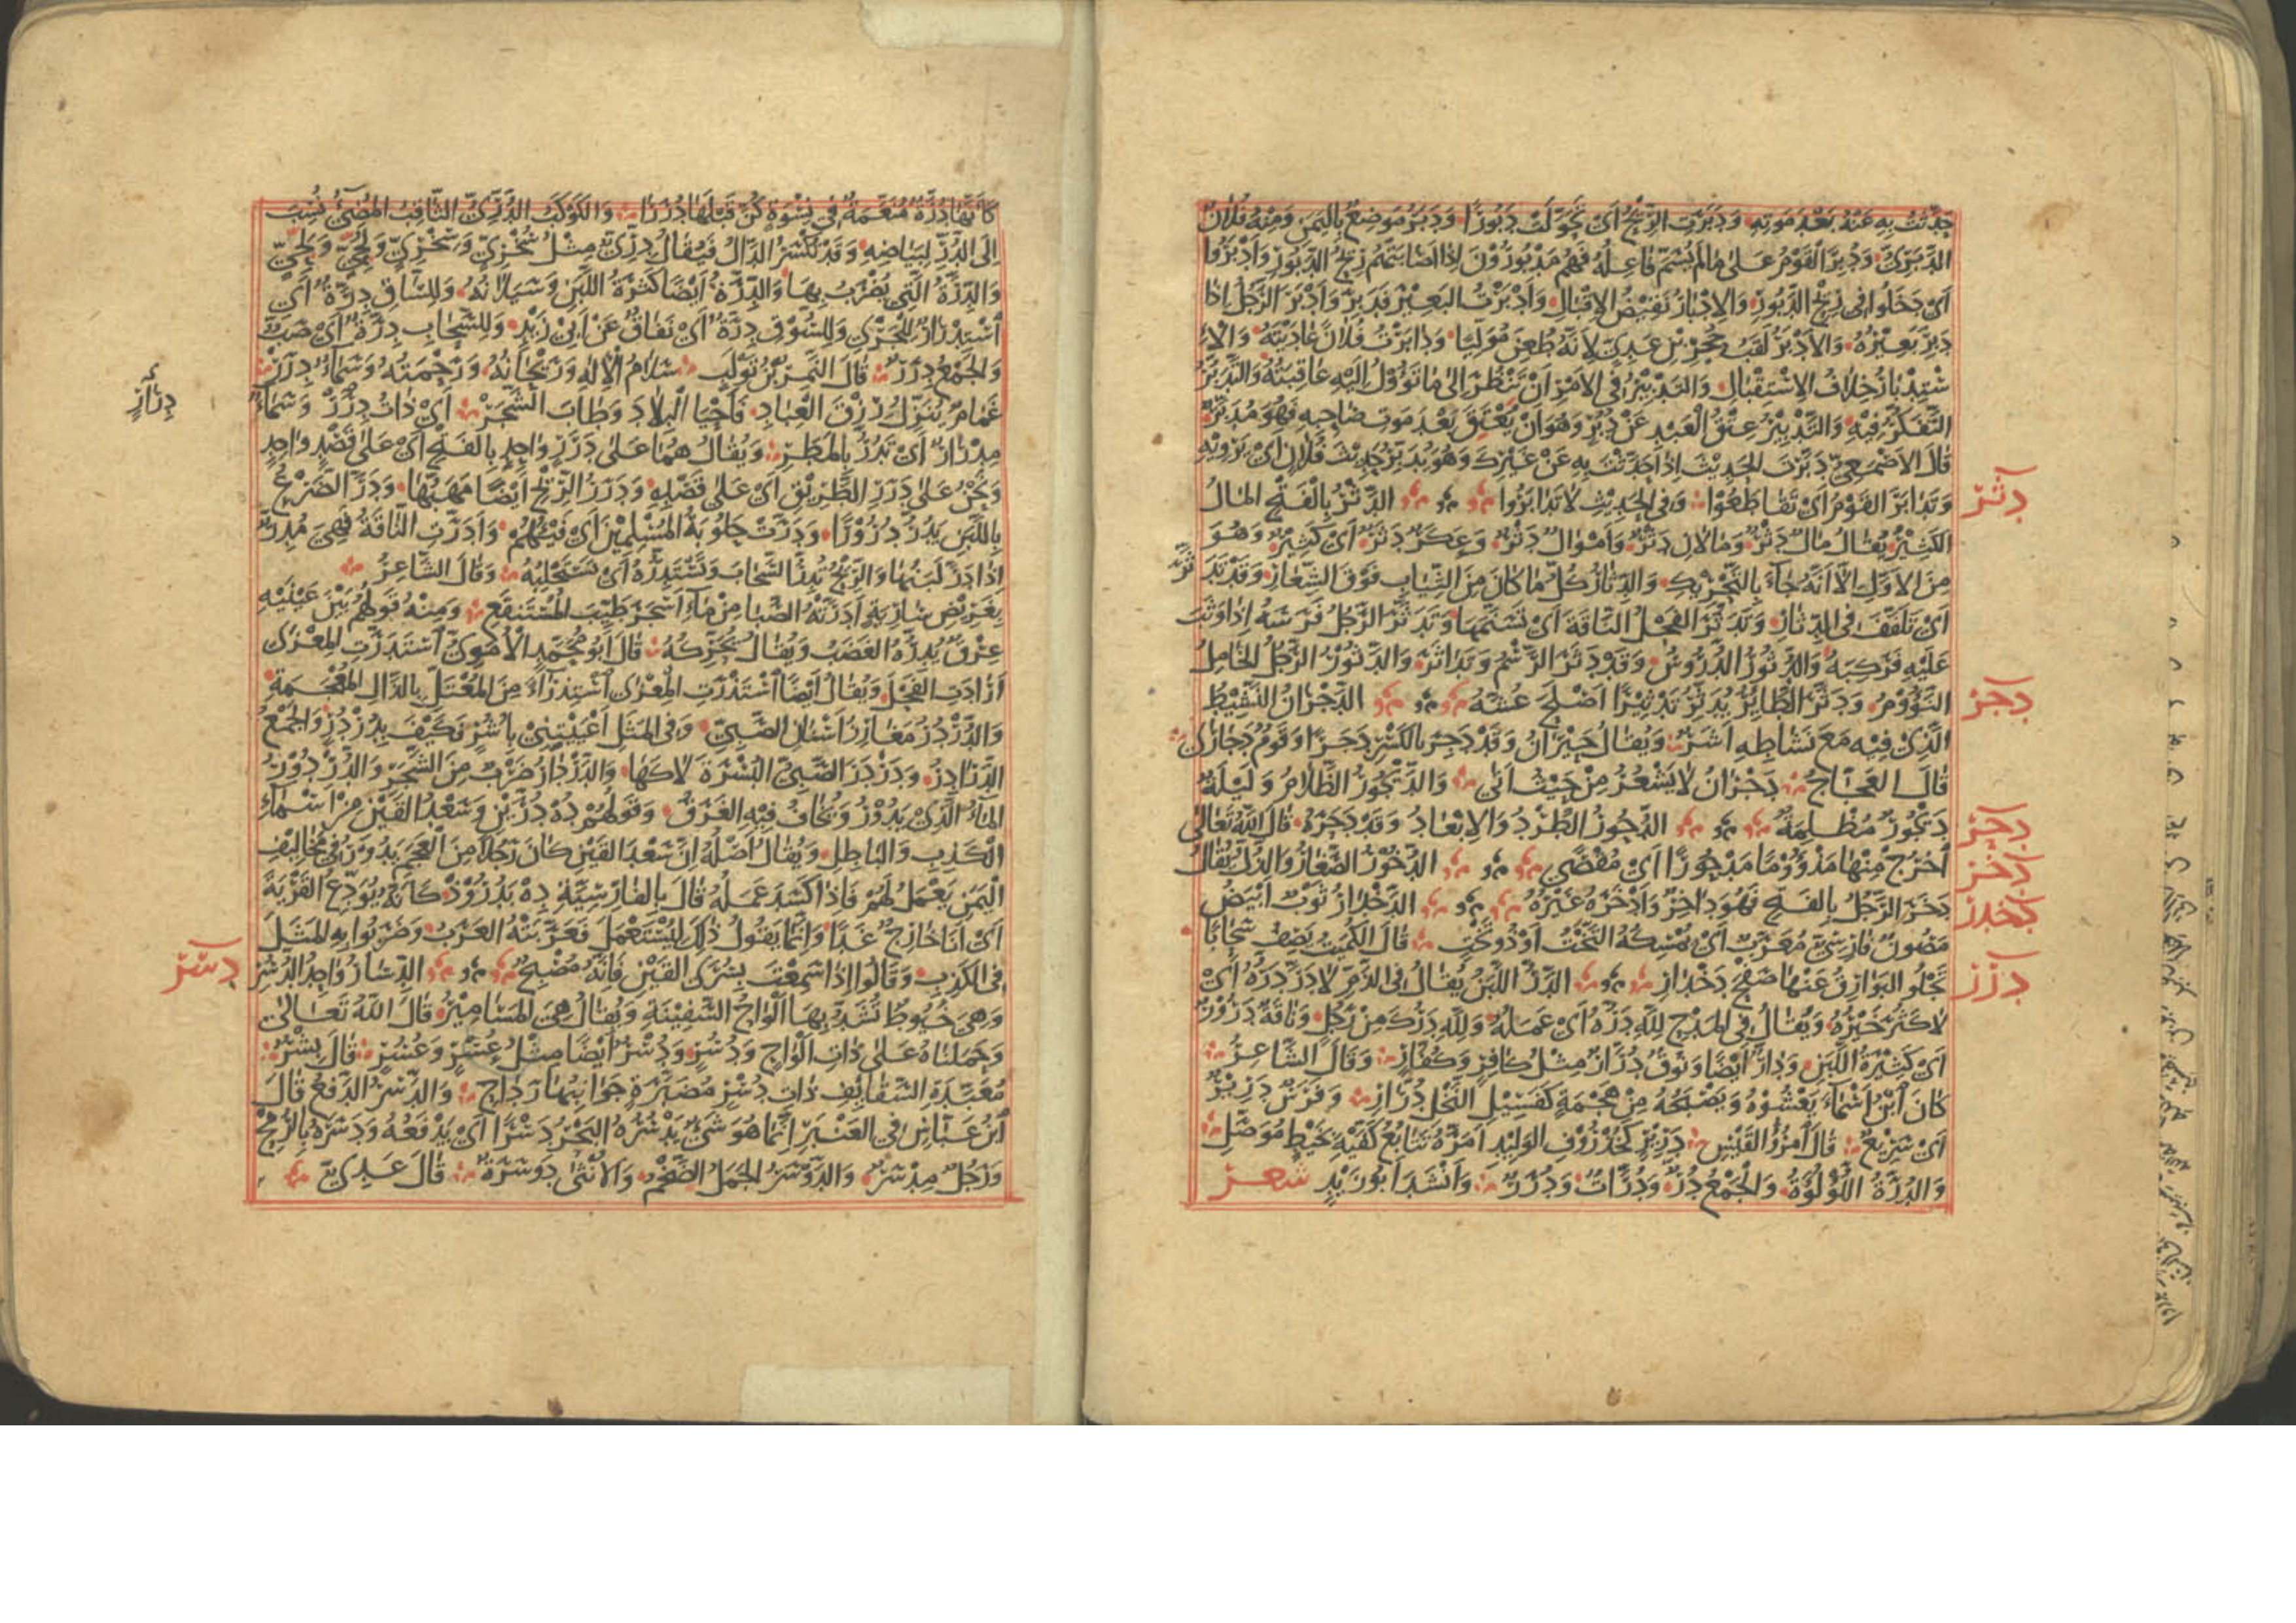 حدثت به عنه بعد موته ودبرت الريح أى تحولت دبورا ودبر موضع باليمن ومنه فلان
الدبرى ودبر القوم على ما لم يسم فاعله فهم مدبورون إذا أصابتهم ريح الدبور وأدبروا
أى دخلوا فى ريح الدبور والإدبار نقيض الإقبال وأدبرت البعير فدبر وأدبر الرجل إذا
دبر بعيره والأدبر لقب حجر بن عدى لأنه طعن موليا ودابرت فلانا عاديته والا
ستدبار خلاف الاستقبال والتدبير فى الأمر أن تنظر إلى ما تؤول إليه عاقبته والتدبر
التفكر فيه والتدبير عتق العبد عن دبر وهو أن يعتق بعد موت صاحبه فهو مدبر
قال الأصمعى دبرت الحديث إذا حدثت به عن غيرك وهو يدبر حديث فلان أى يرويه
وتدابر القوم أى تقاطعوا وفى الحديث لا تدابروا الدثر بالفتح المال
دثر
الكثير يقال مال دثر ومالان دثر وأموال دثر وعكر دثر أى كثير وهو
من الأول إلا أنه جاء بالتحريك والدثار كل ما كان من الثياب فوق الشعار وقد تدثر
أى تلفف فى الدثار وتدثر الفحل الناقة أى تسنمها وتدثر الرجل فرسه إذا وثب
عليه فركبه والدثور الدروس وقد دثر الرسم وتداثر والدثور الرجل الخامل
النؤوم ودثر الطاير يدثر تدثيرا أصلح عشه الدجران النشيط
دجر
الذى فيه مع نشاطه أشر ويقال حيران وقد دجر بالكسر دجرا وقوم دجارى
قال العجاج دجران لا يشعر من حيث أتى والديجور الظلام وليلة
ديجور مظلمة الدحور الطرد والإبعاد وقد دحره قال الله تعالى
دحر
اخرج منها مذؤوما مدحورا أى مقصى الدخور الصغار والذل يقال
دخر
دخر الرجل بالفتح فهو داخر وأدخره غيره الدخدار ثوب أبيض
دخدر
مصون فارسى معرب أى يمسكه التخت أو ذو تخت قال الكميت يصف سحابا
تجلو البوارق عنها صفح دخدار الدر اللبن يقال فى الذم لا در دره أى
درر
لا كثر خيره ويقال فى المدح لله دره أى عمله ولله درك من رجل وناقة درور
أى كثيرة اللبن ودار أيضا ونوق درار مثل كافر وكفار وقال الشاعر
كان ابن أسماء يعشوه ويصبحه من هجمة كفسيل النخل درار وفرس درير
أى سريع قال امرؤ القيس درير كخذروف الوليد أمره تتابع كفيه بخيط موصل
والدرة اللؤلؤة والجمع در ودرات ودرر وأنشد أبو زيد شعر
كأنها درة منعمة فى نسوة كن قبلها دررا والكوكب الدرى الثاقب المضئ نسب
إلى الدر لبياضه وقد تكسر الدال فيقال درى مثل سخرى وسخرى ولجى ولجى
والدرة التى يضرب بها والدرة أيضا كثرة اللبن وسيلانه وللساق درة أى
استدرار للجرى وللسوق درة أى نفاق عن أبى زيد وللسحاب درة أى صب
والجمع درر قال النمر بن تولب سلام الإله وريحانه ورحمته وسماء درر
غمام ينزل رزق العباد فأحيا البلاد وطاب الشجر أى ذات درر وسماء
مدرار أى تدر بالمطر ويقال هما على درر واحد بالفتح أى على قصد واحد
ونحن على درر الطريق أى على قصده ودرر الريح أيضا مهبها ودر الضرع
باللبن يدر درورا ودرت حلوبة المسلمين أى فيئهم وأدرت الناقة فهى مدر
إذا در لبنها والريح تدر السحاب وتستدره أى تستحلبه وقال الشاعر
بغريض سارية أدرته الصبا من ماء أسجر طيب المستنقع ومنه قولهم بين عينيه
عرق يدره الغضب ويقال يحركه قال أبو محمد الأموى استدرت المعزى
أرادت الفحل ويقال أيضا استذرت المعزى استذراء من المعتل بالذال المعجمة
والدردر مغارز أسنان الصبى وفى المثل أعييتنى بأشر فكيف بدردر والجمع
الدرادر ودردر الصبى البسرة لاكها والدردار ضرب من الشجر والدردور
الماء الذى يدور ويخاف فيه الغرق وقولهم ده درين وسعد القين من أسماء
الكذب والباطل ويقال أصله ان سعد القين كان رجلا من العجم يدور فى مخاليف
اليمن يعمل لهم فإذا كسد عمله قال بالفارسية ده بدرود كأنه يودع القرية
أى أنا خارج غدا وإنما يقول ذلك ليستعمل فعربته العرب وضربوا به المثل
فى الكذب وقالوا إذا سمعت بسرى القين فإنه مصبح الدسار واحد الدسر
دسر
وهى خيوط تشد بها ألواح السفينة ويقال هى المسامير قال الله تعالى
وحملناه على ذات ألواح ودسر ودسر أيضا مثل عسر وعسر قال بشر
معبدة السقايف ذات دسر مضبرة جوانبها رداح والدسر الدفع قال
ابن عباس فى العنبر إنما هو شئ يدسره البحر دسرا أى يدفعه ودسره بالرمح
ورجل مدسر والدوسر الجمل الضخم والأنثى دوسرة قال عدى